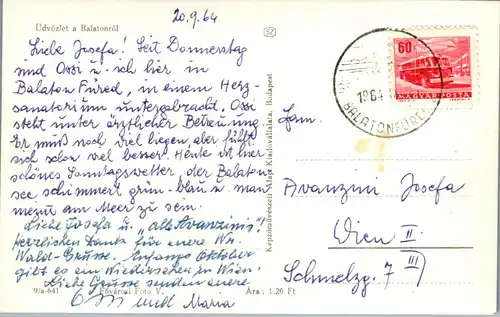 20.9.64
Üdvözlet a Balatonról
Liebe Josefa! Seit Donnerstag
sind Ossi u. ich hier in
Balaton Füred, in einem Herz-
sanatorium untergebracht. Ossi
steht unter ärztlicher Betreuung.
Er muß noch viel liegen, aber fühlt
sich schon viel besser. Heute ist hier
schönes Sonntagswetter, der Balaton
see schimmert grün-blau u. man
meint am Meer zu sein.
Liebe Josefa u. "alle Avanzinis"!
Herzlichen Dank für euere Wr.
Wald-Grüsse. Anfangs Oktober
gibt es ein Wiedersehen zu Wien!
Liebe Grüsse senden euere
Ossi und Maria
9/a-641 Fővárosi Foto V. Ára: 1,20 Ft
Képzőművészeti Alap Kiadóvállalata, Budapest
60f
MAGYAR POSTA
1964
BALATONFÜRED
Fam.
Avanzini Josefa
Wien II.
Schmelzg. 7 III)